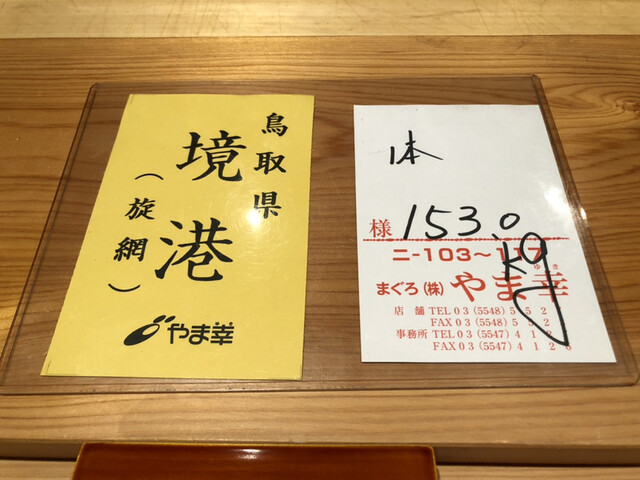 鳥取県
境港
(旋網)
やま幸
1本
様 153.0
kg
ニ-103~117
ゆき
まぐろ(株)やま幸
店舗 TEL 03 (5548) 5 5 2
FAX 03 (5548) 5 5 2
事務所 TEL 03 (5547) 4 1 2
FAX 03 (5547) 4 1 2 6